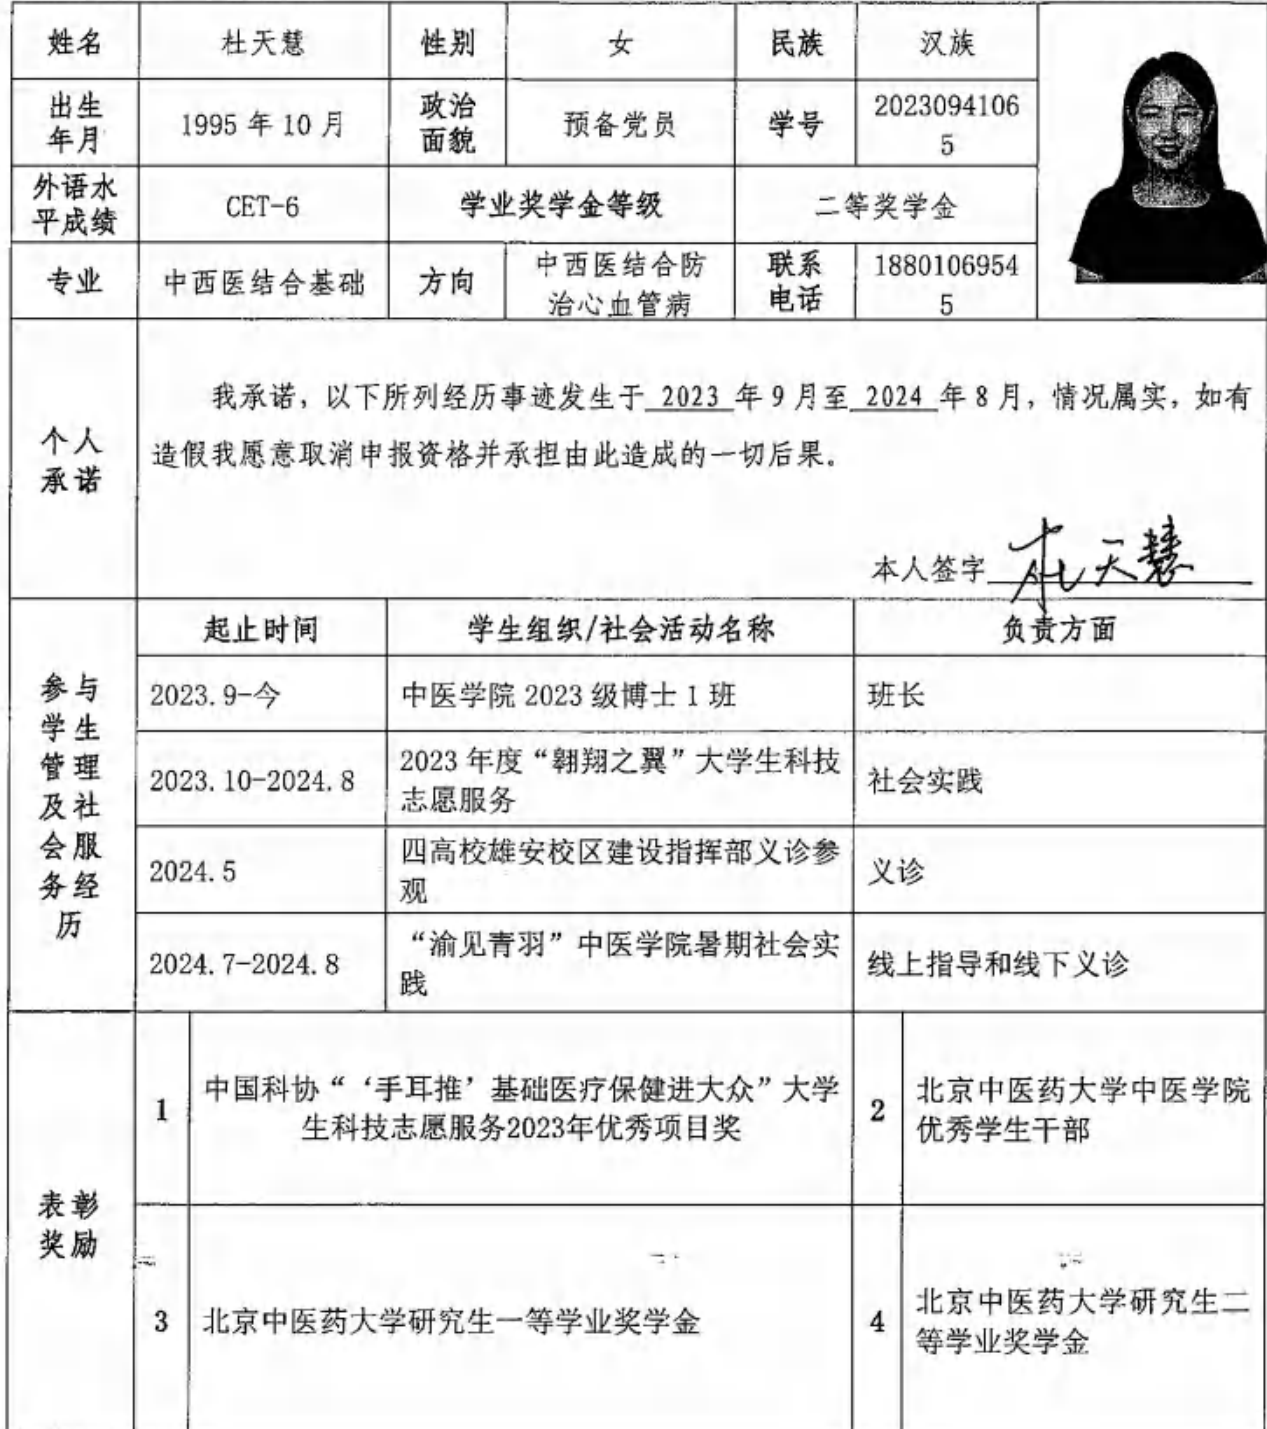 姓名 杜天慧 性别 女 民族 汉族
出生年月 1995 年 10 月 政治面貌 预备党员 学号 20230941065
外语水平成绩 CET-6 学业奖学金等级 二等奖学金
专业 中西医结合基础 方向 中西医结合防治心血管病 联系电话 18801069545
个人承诺
我承诺，以下所列经历事迹发生于 2023 年 9 月至 2024 年 8 月，情况属实，如有
造假我愿意取消申报资格并承担由此造成的一切后果。
本人签字 杜天慧
参与学生管理及社会服务经历
起止时间 学生组织/社会活动名称 负责方面
2023.9-今 中医学院 2023 级博士 1 班 班长
2023.10-2024.8 2023 年度“翱翔之翼”大学生科技志愿服务 社会实践
2024.5 四高校雄安校区建设指挥部义诊参观 义诊
2024.7-2024.8 “渝见青羽”中医学院暑期社会实践 线上指导和线下义诊
表彰奖励
1 中国科协“‘手耳推’基础医疗保健进大众”大学
生科技志愿服务2023年优秀项目奖
2 北京中医药大学中医学院
优秀学生干部
3 北京中医药大学研究生一等学业奖学金
4 北京中医药大学研究生二
等学业奖学金